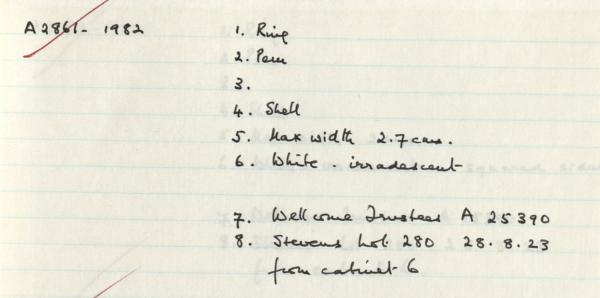 A2861-1982
1. Ring
2. Peru
3.
4. Shell
5. Max width 2.7cms.
6. White - irradescent
7. Wellcome Trustees A 25390
8. Stevens Lot 280 28.8.23
from cabinet 6